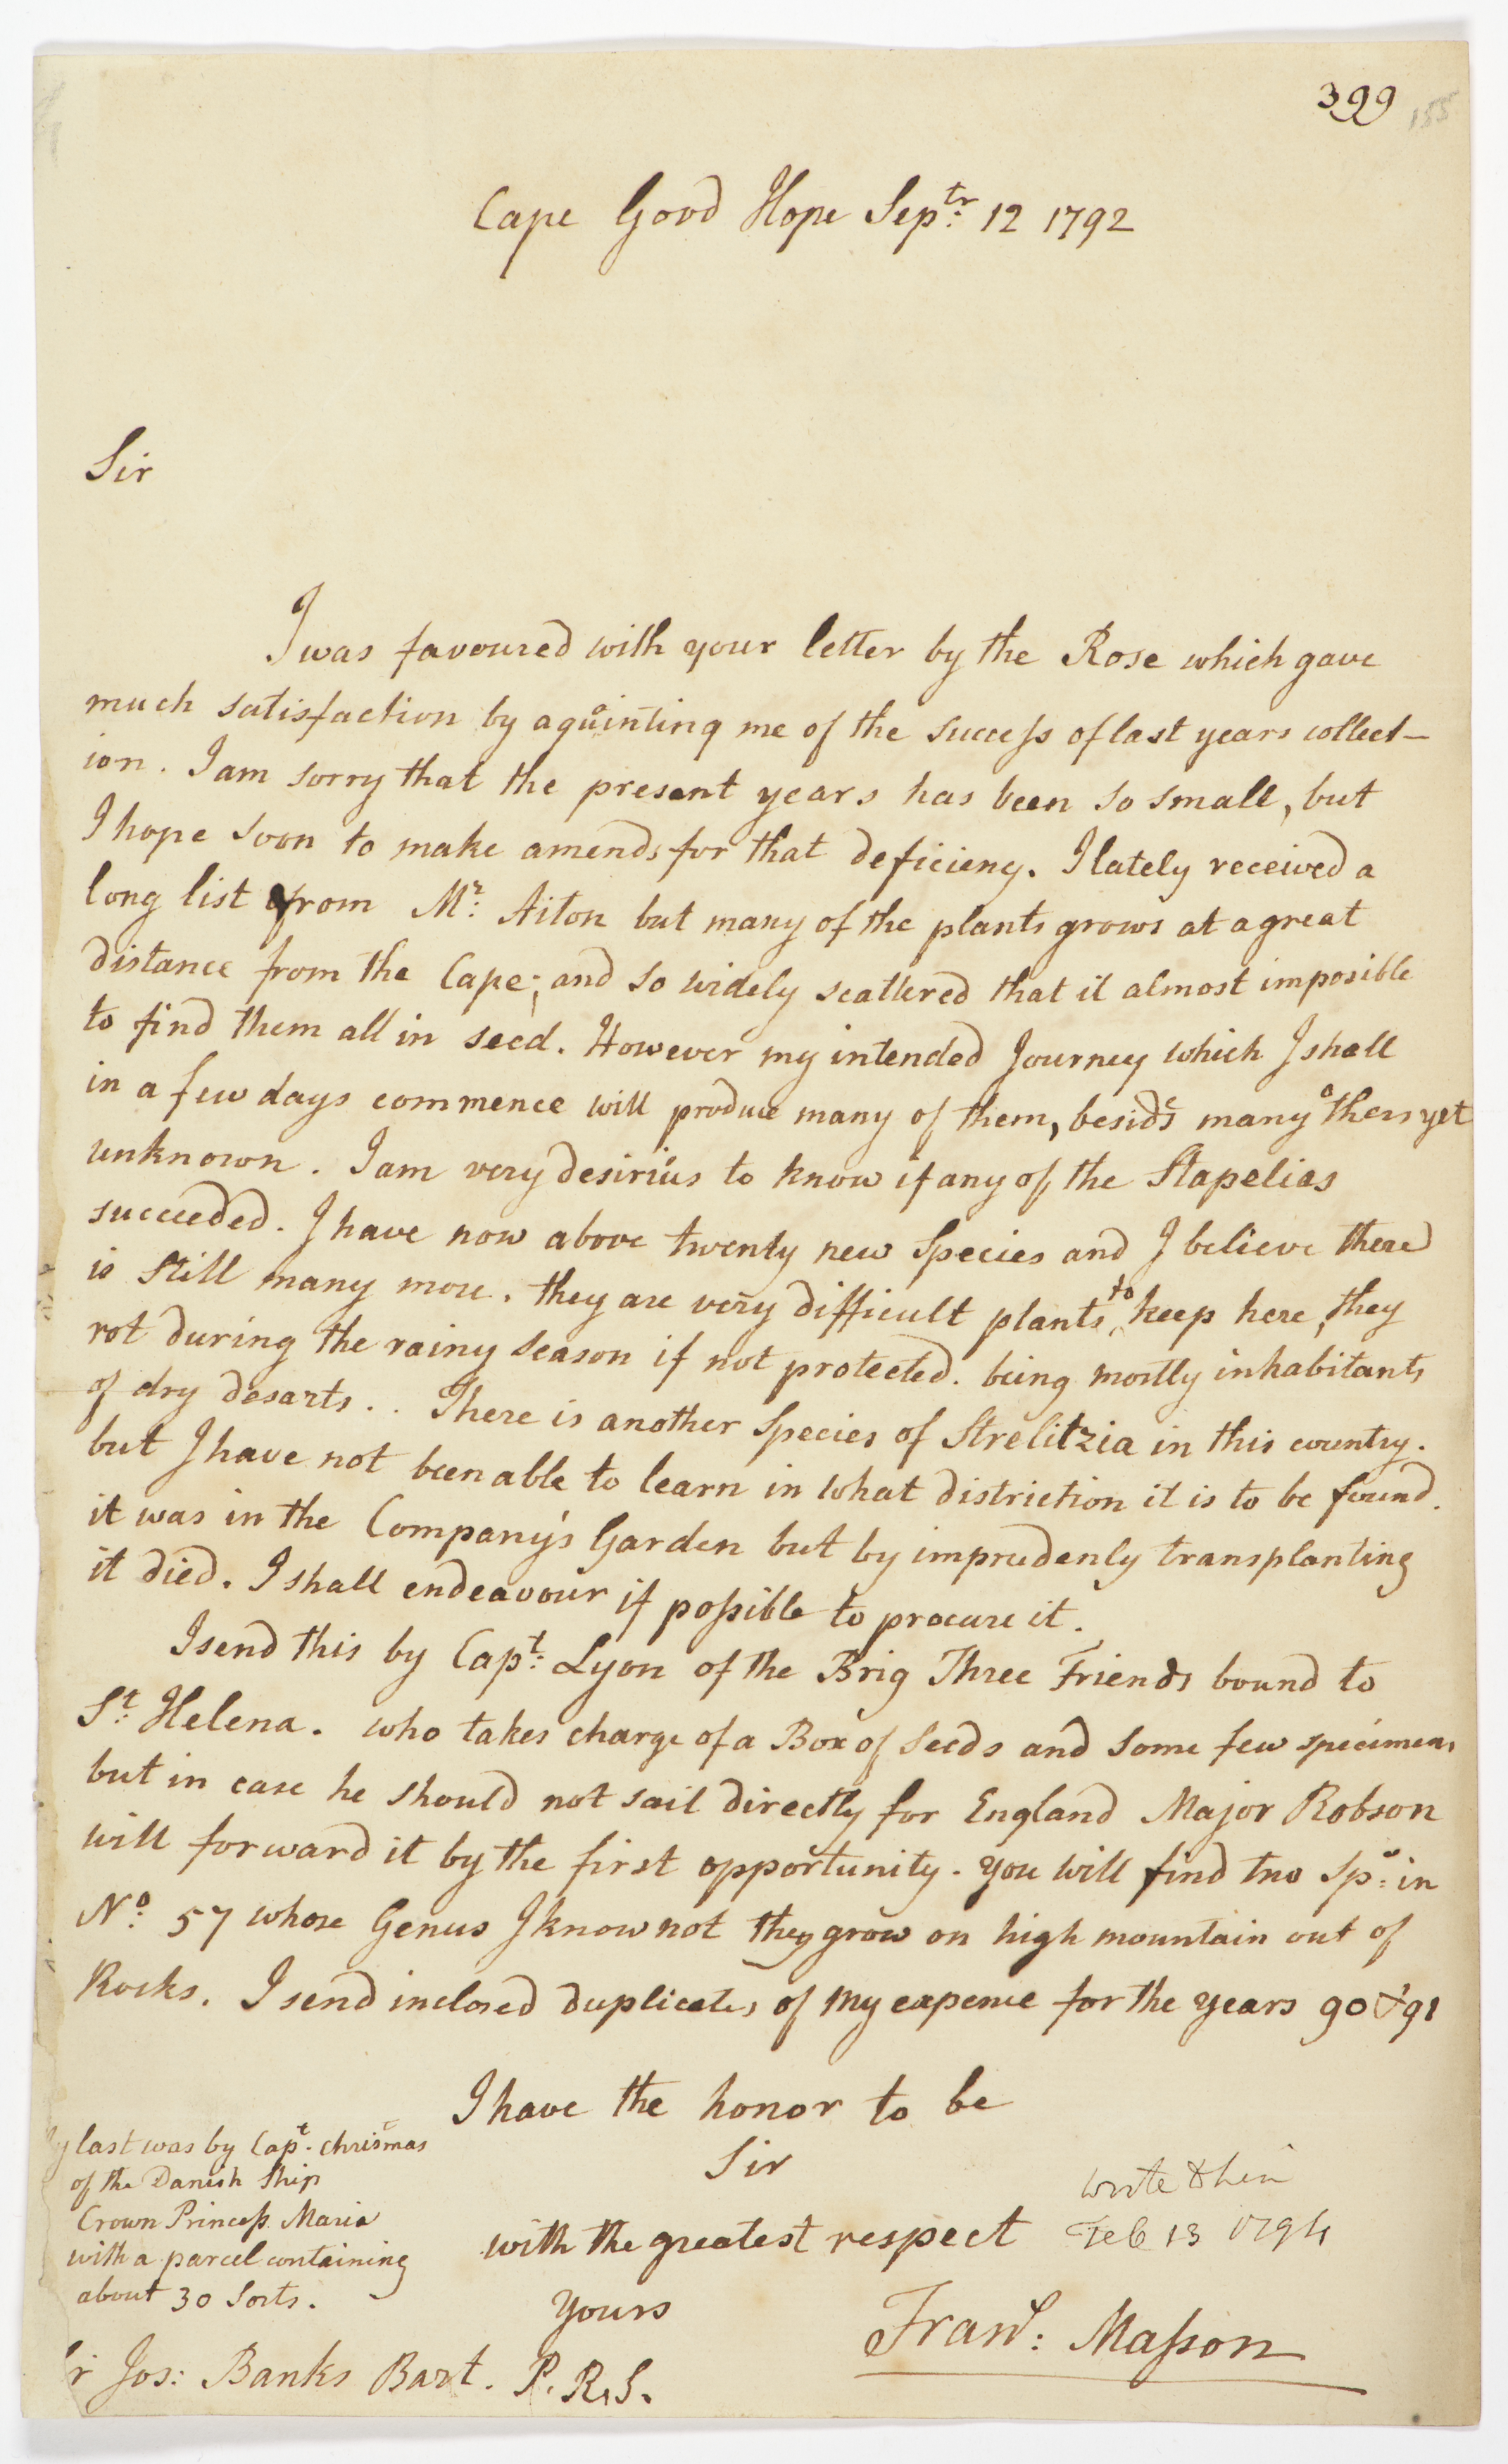 399
155
Cape Good Hope Septr. 12 1792
Sir
I was favoured with your letter by the Rose which gave
much satisfaction by aquainting me of the success of last years collect-
ion. I am sorry that the present years has been so small, but
I hope soon to make amends for that deficieny. I lately received a
long list from Mr. Aiton but many of the plants grows at a great
distance from the Cape; and so widely scattered that it almost imposible
to find them all in seed. However my intended Journey which I shall
in a few days commence will produce many of them, besides many others yet
unknown. I am very desirius to know if any of the Stapelias
succeeded. I have now above twenty new Species and I believe there
is still many more. they are very difficult plants to keep here, they
rot during the rainy season if not protected. being mostly inhabitants
of dry desarts.. There is another Species of Strelitzia in this country.
but I have not been able to learn in what distriction it is to be found.
it was in the Company's Garden but by imprudenly transplanting
it died. I shall endeavour if possible to procure it.
I send this by Capt. Lyon of the Brig Three Friends bound to
St. Helena. who takes charge of a Box of Seeds and some few specimens
but in case he should not sail directly for England Major Robson
will forward it by the first opportunity. you will find two Sp: in
No. 57 whose Genus I know not they grow on high mountain out of
Rocks. I send inclosed duplicates of my expence for the years 90 & 91
I have the honor to be
Sir
with the greatest respect
yours
Frans: Masson
y last was by Capt. Chrismas
of the Danish Ship
Crown Princess Maria
with a parcel containing
about 30 Sorts.
wrote
Feb 13 1794
r Jos: Banks Bart. P.R.S.